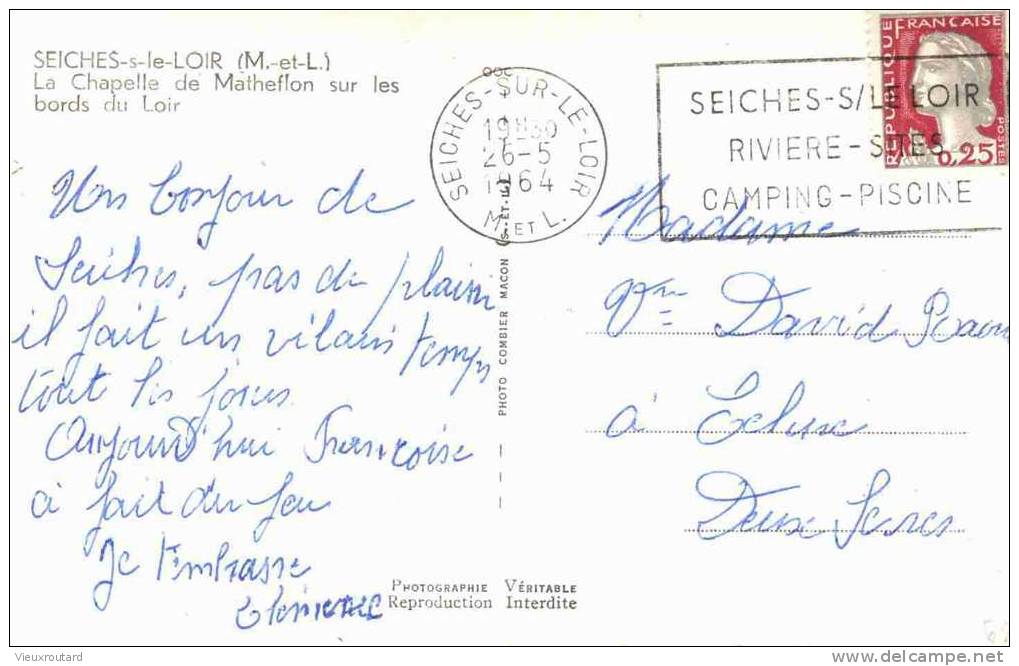 SEICHES-s-le-LOIR (M.-et-L.)
La Chapelle de Matheflon sur les
bords du Loir
Un bonjour de
Seiches, pas de plaisir
il fait un vilain temps
tout les jours
Aujourd'hui Francoise
à fait du feu
Je t'embrasse
PHOTO COMBIER MACON (S.-ET-L.)
PHOTOGRAPHIE VÉRITABLE
Reproduction Interdite
SEICHES-SUR-LE-LOIR
19H30
26-5
1964
M. ET L.
SEICHES-S/LE LOIR
RIVIERE-SITES
CAMPING-PISCINE
REPUBLIQUE FRANCAISE
0,25
POSTES
Madame
Vve David
à
Deux Sèvres
Vieuxroutard